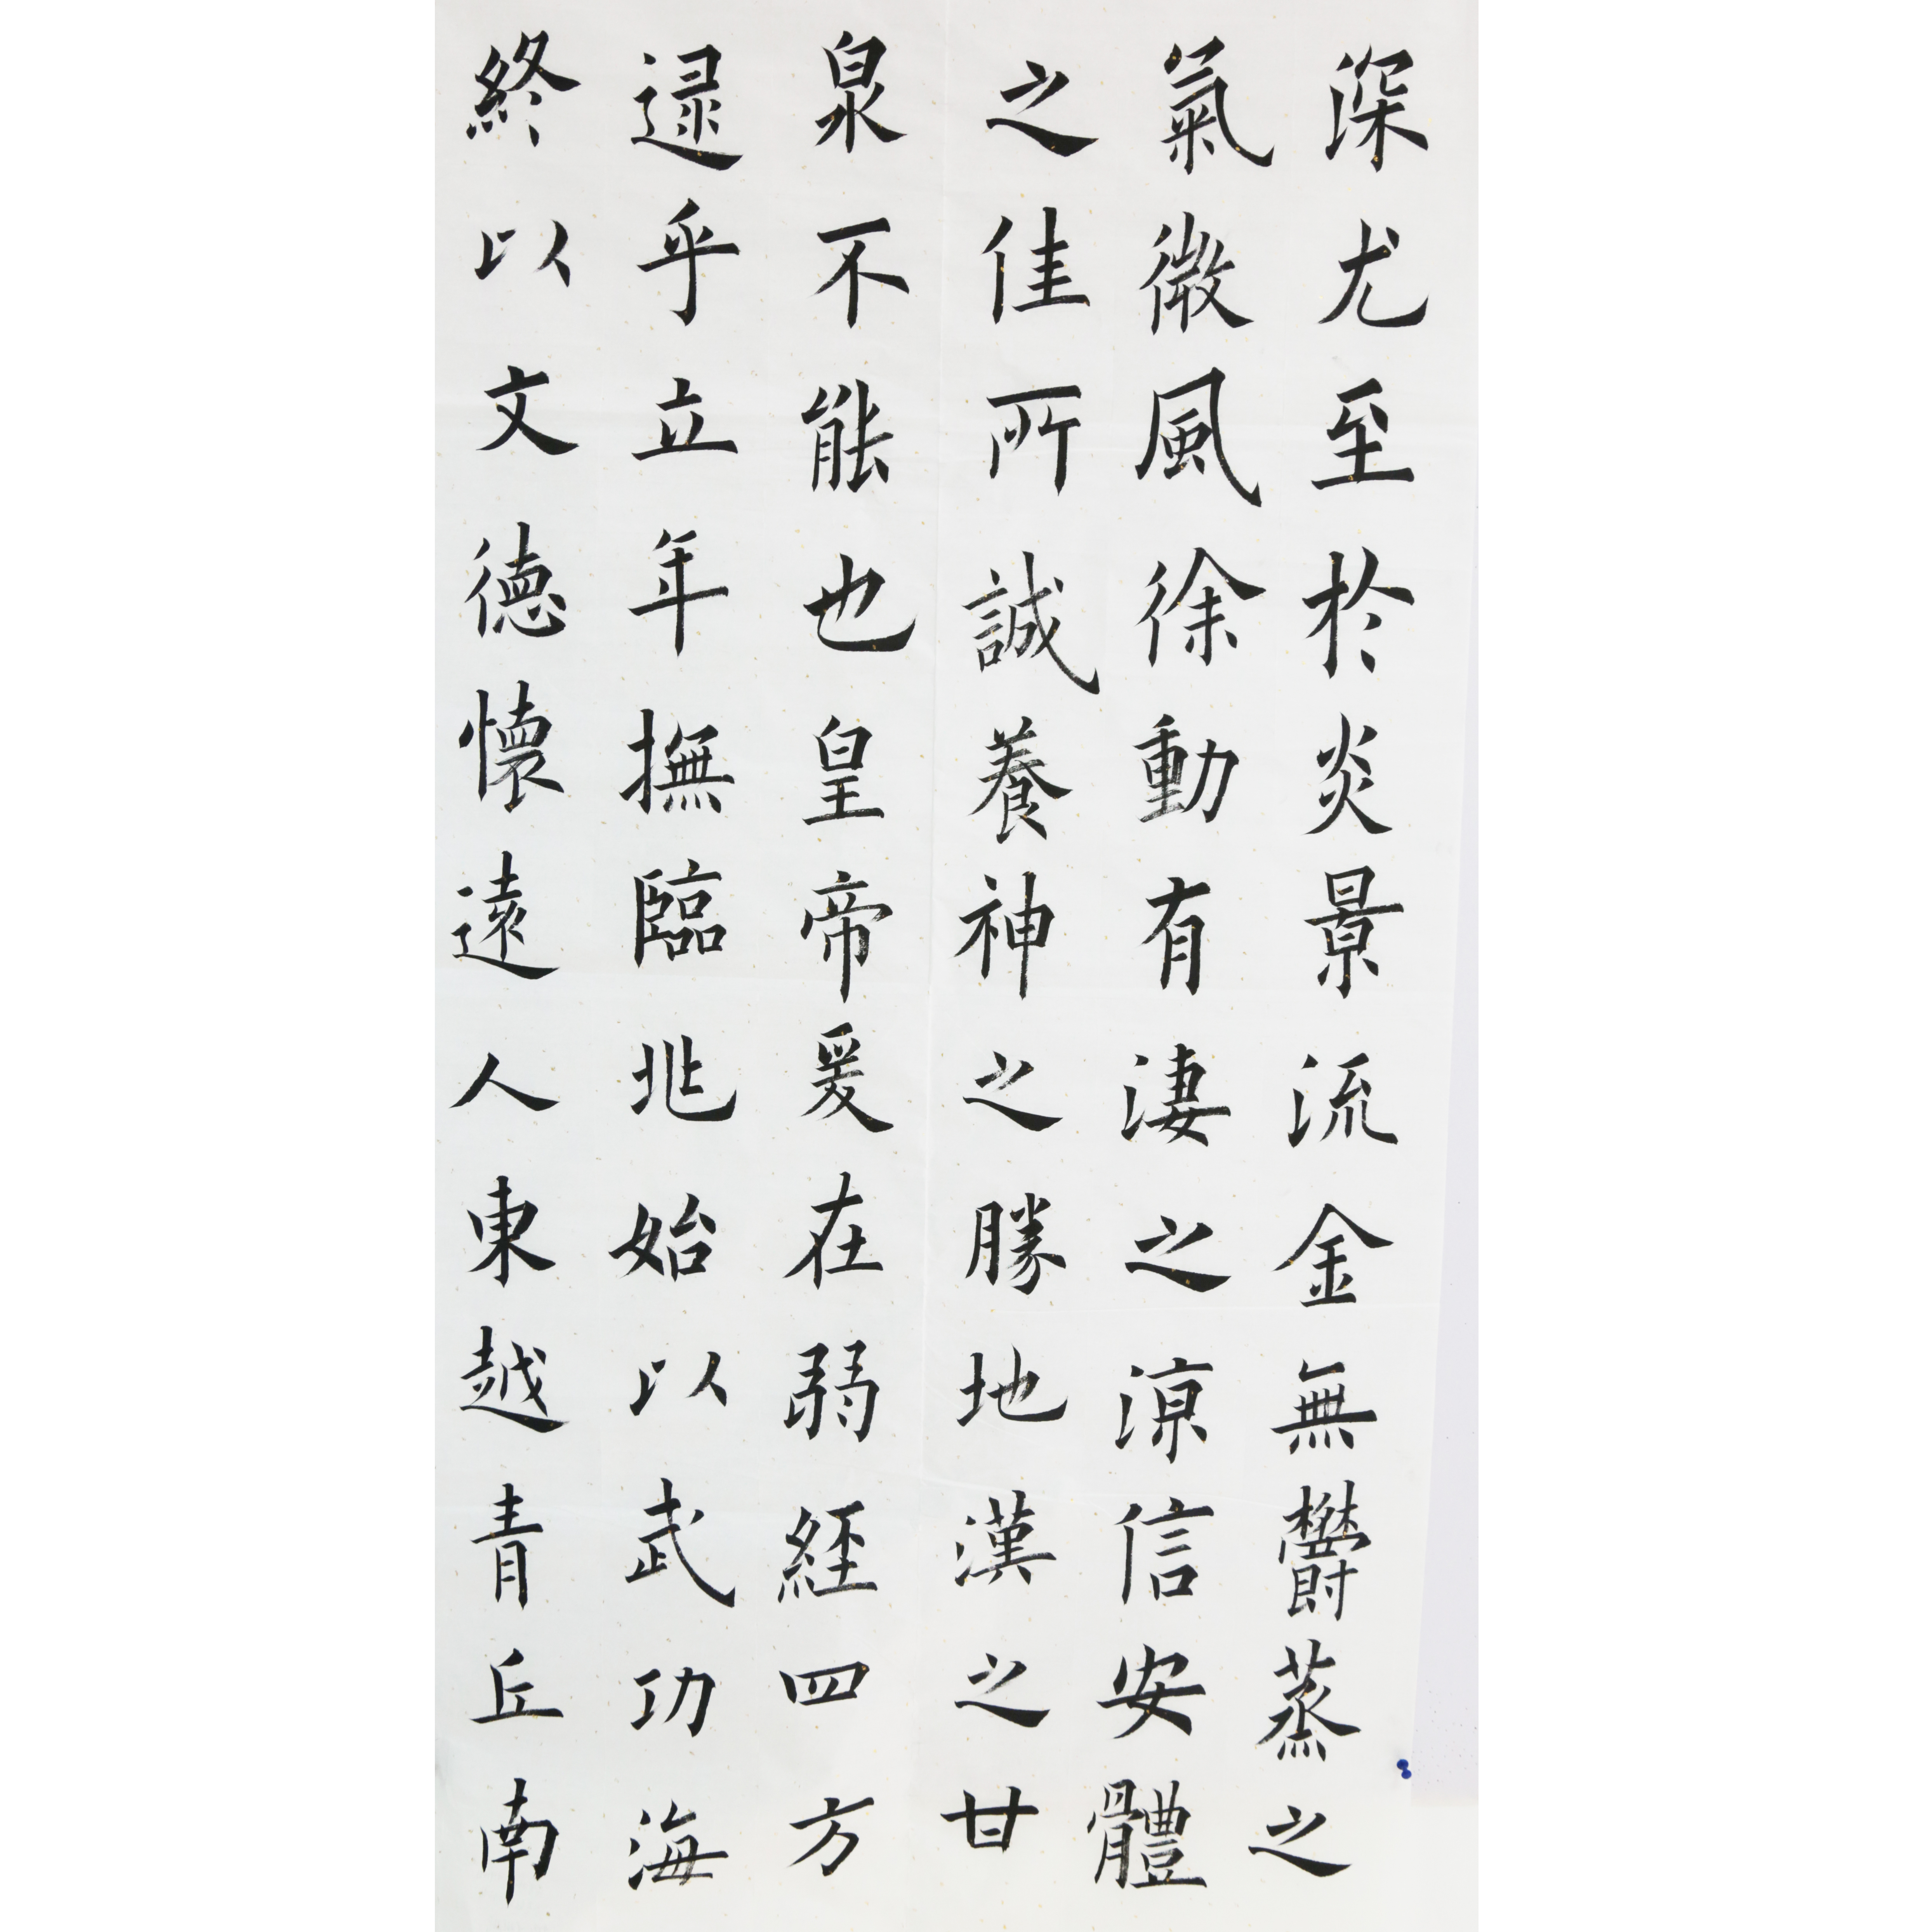 深尤至於炎景流金無欝蒸之
氣微風徐動有淒之涼信安體
之佳所誠養神之勝地漢之甘
泉不能也皇帝爰在弱経四方
逯乎立年撫臨兆始以武功海
終以文徳懐遠人東越青丘南